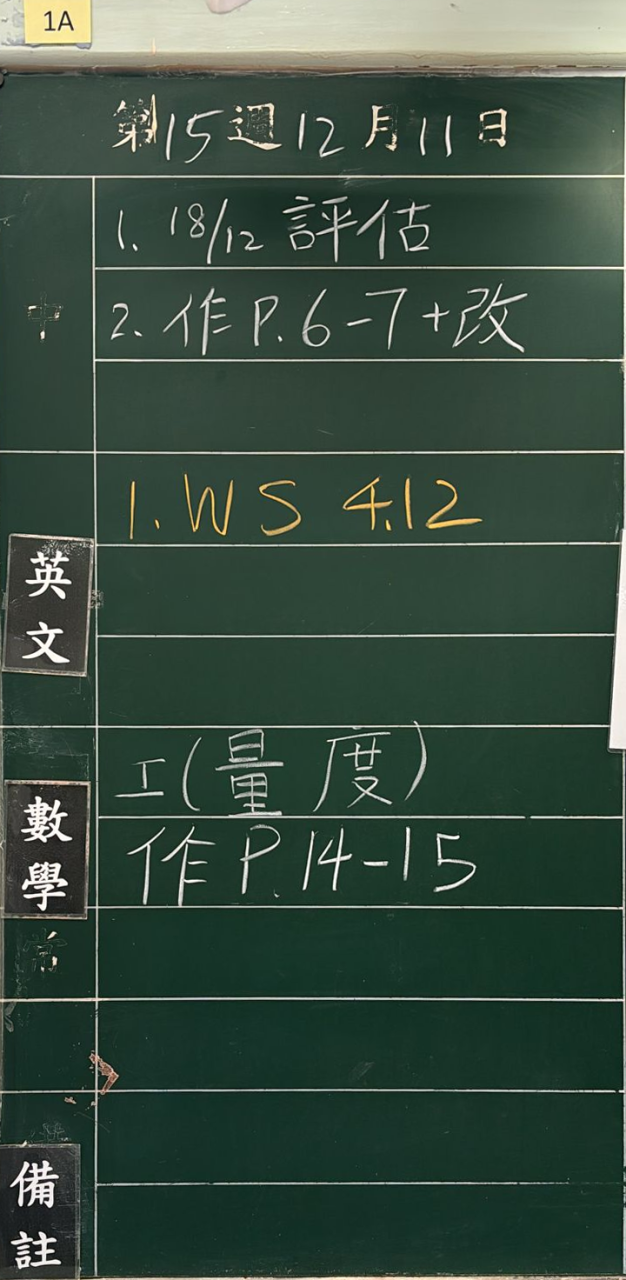 1A
第15週12月11日
中
1. 18/12 評估
2. 作 P.6-7+改
英文
1. WS 4.12
數學
工(量度)
作 P.14-15
常
備註